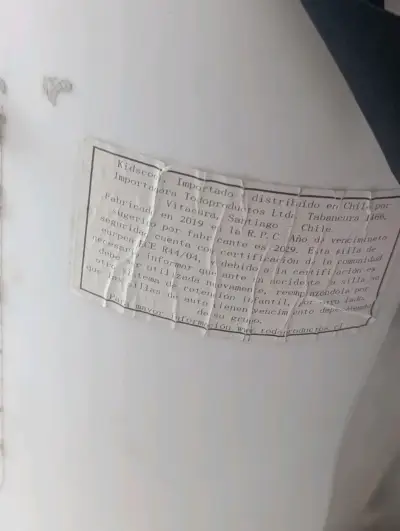 Kidscool, Importado y distribuido en Chile por
importadora Todoproductos Ltda. Tabancura 1400,
Vitacura, Santiago Chile.
Fabricado en 2019 la R.P.C Año de vencimineto
sugerido por fabricante es 2029. Esta silla de
seguridad cuenta con certificación de la comunidad
europea ECE R44/04, debido a la certificación es
necesario informar que ante un accidente la silla no
debe ser utilizada nuevamente, reemplazándola por
otro sistema de retención infantil, por otro lado,
que las sillas de auto tienen vencimiento dependiendo
de su grupo.
Para mayor información www.todoproductos.cl